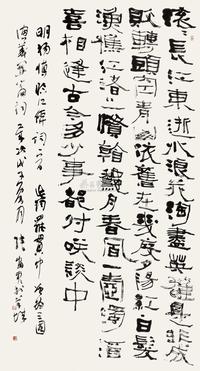 滚長江東逝水浪花淘盡英雄是非成
敗轉頭空青山依舊在幾度夕陽紅白髮
漁樵江渚上慣看秋月春風一壺濁酒
喜相逢古今多少事都付笑談中
明楊慎臨江仙詞一首 羅貫中 三國
演義